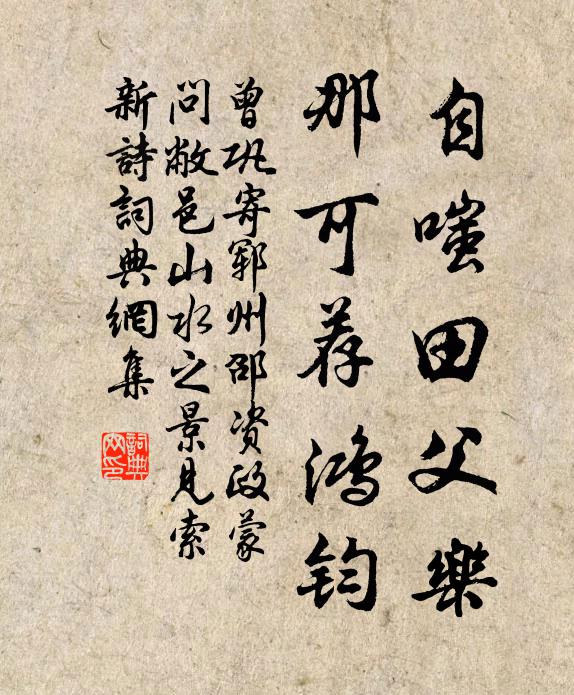 自嗤田父樂
那可荐鴻钧
曾巩寄郓州邵资政蒙
問敝邑山水之景見索
新詩詞典網集
詞典
网印